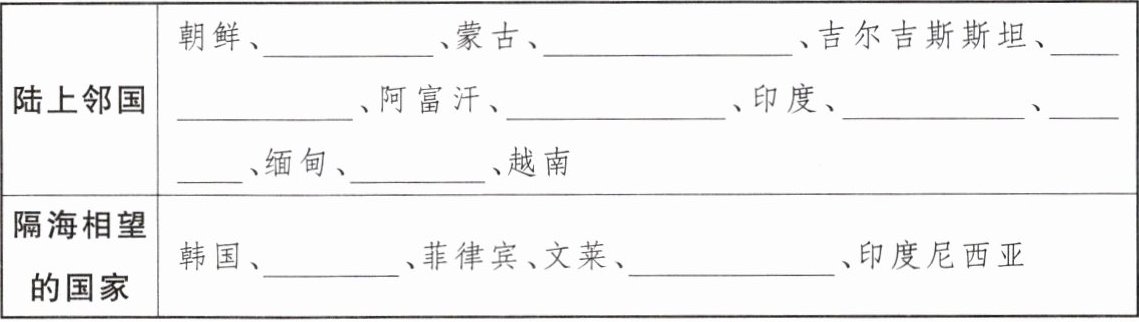 陆上邻国
朝鲜、________、蒙古、____________、吉尔吉斯斯坦、____
________、阿富汗、__________、印度、________、____
____、缅甸、______、越南
隔海相望
的国家
韩国、______、菲律宾、文莱、__________、印度尼西亚